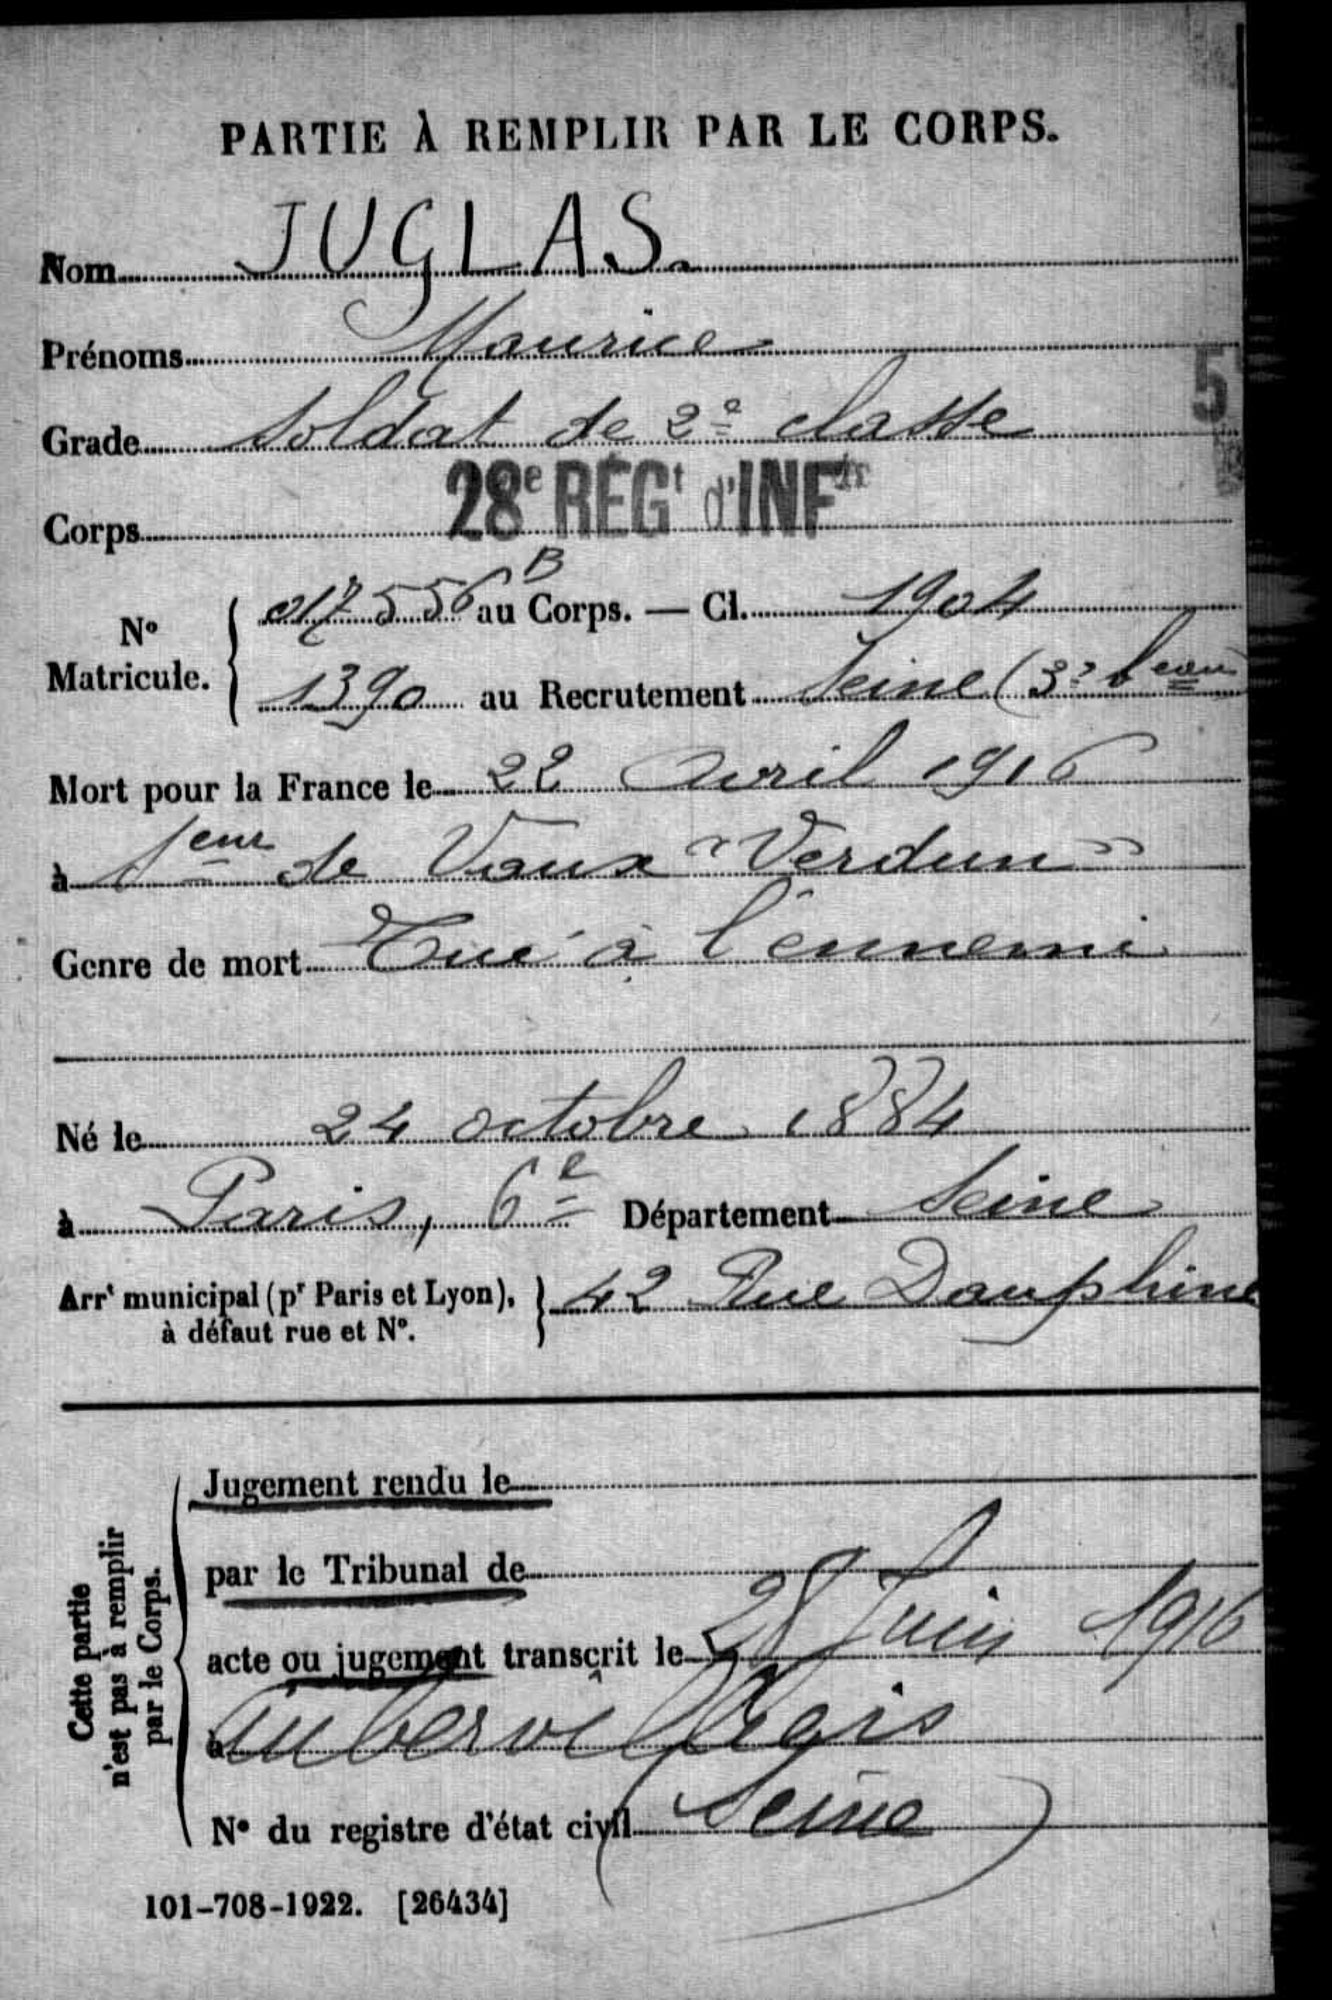 PARTIE À REMPLIR PAR LE CORPS.
Nom JUGLAS.
Prénoms Maurice
Grade Soldat de 2e classe
5
Corps 28e RÉGt d'INFie
No Matricule. 017556 B au Corps. — Cl. 1904
1390 au Recrutement Seine (3e beau
Mort pour la France le 22 Avril 1916
à Steur de Vaux "Verdun"
Genre de mort Tué à l'ennemi
Né le 24 octobre 1884
à Paris, 6e Département Seine
Arrt municipal (pr Paris et Lyon), à défaut rue et No. } 42 Rue Dauphine
Cette partie n'est pas à remplir par le Corps.
Jugement rendu le
par le Tribunal de
acte ou jugement transcrit le 28 Juin 1916
à Aubervilliers
No du registre d'état civil (Seine)
101-708-1922. [26434]